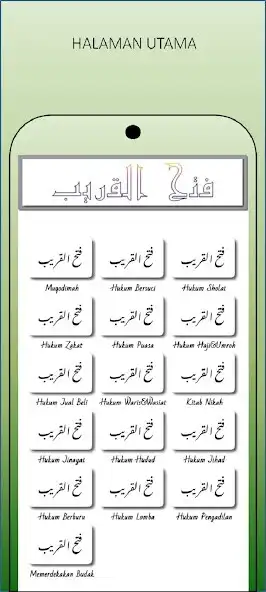 HALAMAN UTAMA
فتح القريب
فتح القريب فتح القريب فتح القريب
Muqodimah Hukum Bersuci Hukum Sholat
فتح القريب فتح القريب فتح القريب
Hukum Zakat Hukum Puasa Hukum Haji&Umroh
فتح القريب فتح القريب فتح القريب
Hukum Jual Beli Hukum Waris&Wasiat Kitab Nikah
فتح القريب فتح القريب فتح القريب
Hukum Jinayat Hukum Hudud Hukum Jihad
فتح القريب فتح القريب فتح القريب
Hukum Berburu Hukum Lomba Hukum Pengadilan
فتح القريب
Memerdekakan Budak